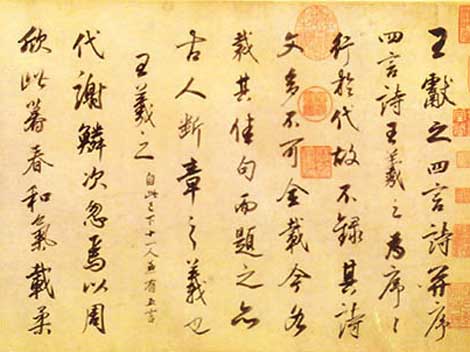 王獻之四言詩并序
四言詩王羲之為序〻
行於代故不錄其詩
文多不可全載今各
裁其佳句而題之亦
古人斷章之義也
王羲之 自此已下十一人並有五言
代謝鱗次忽焉以周
欣此暮春和氣載柔